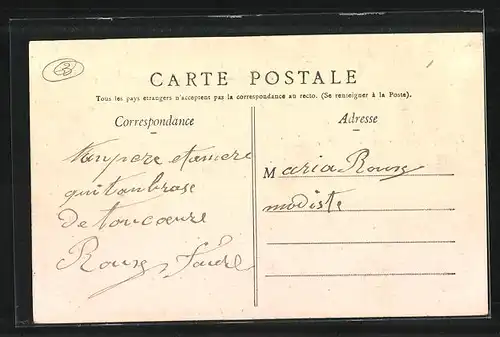 CARTE POSTALE
Tous les pays étrangers n'acceptent pas la correspondance au recto. (Se renseigner à la Poste).
Correspondance
Adresse
tanpere etamere
quitanbrase
De toucoeure
Rouse
Maria Rouse
modiste